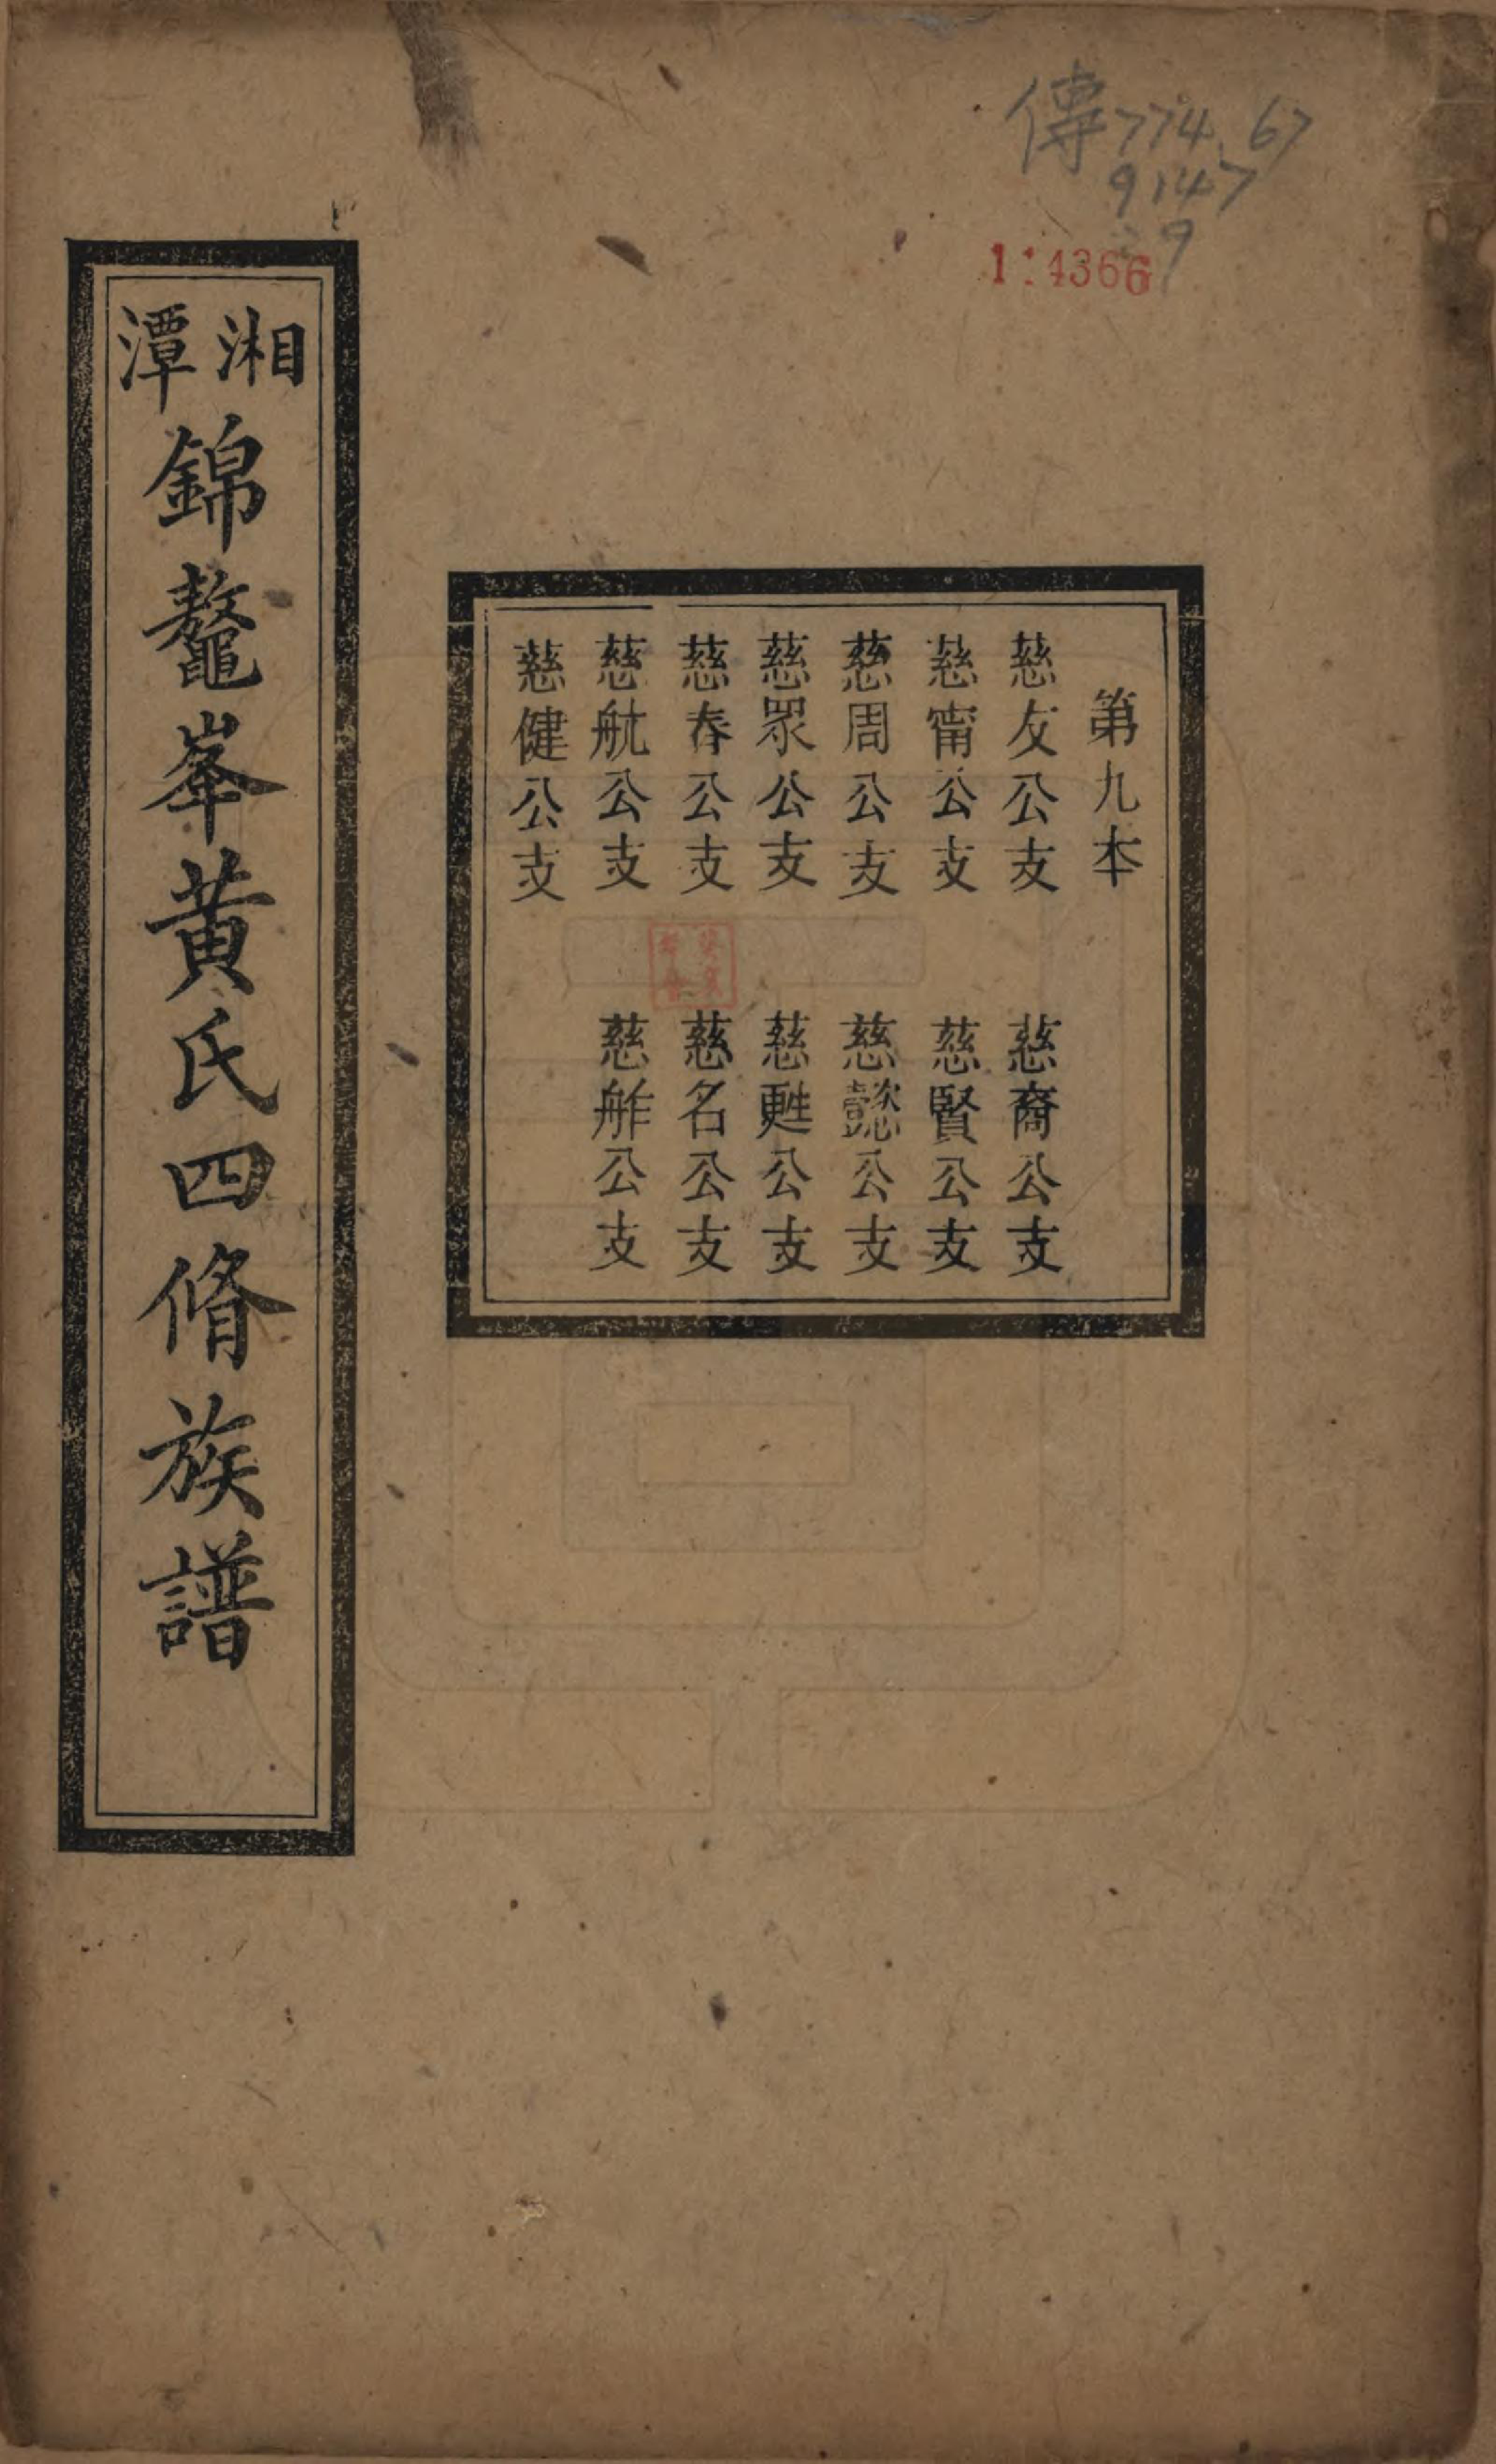 傳774.67
9147
:9
1:4366
第九本
慈友公支 慈裔公支
慈甯公支 慈賢公支
慈周公支 慈懿公支
慈眾公支 慈甦公支
慈春公支 慈名公支
慈航公支 慈舴公支
慈健公支
湘潭
錦鼇峯黃氏四脩族譜